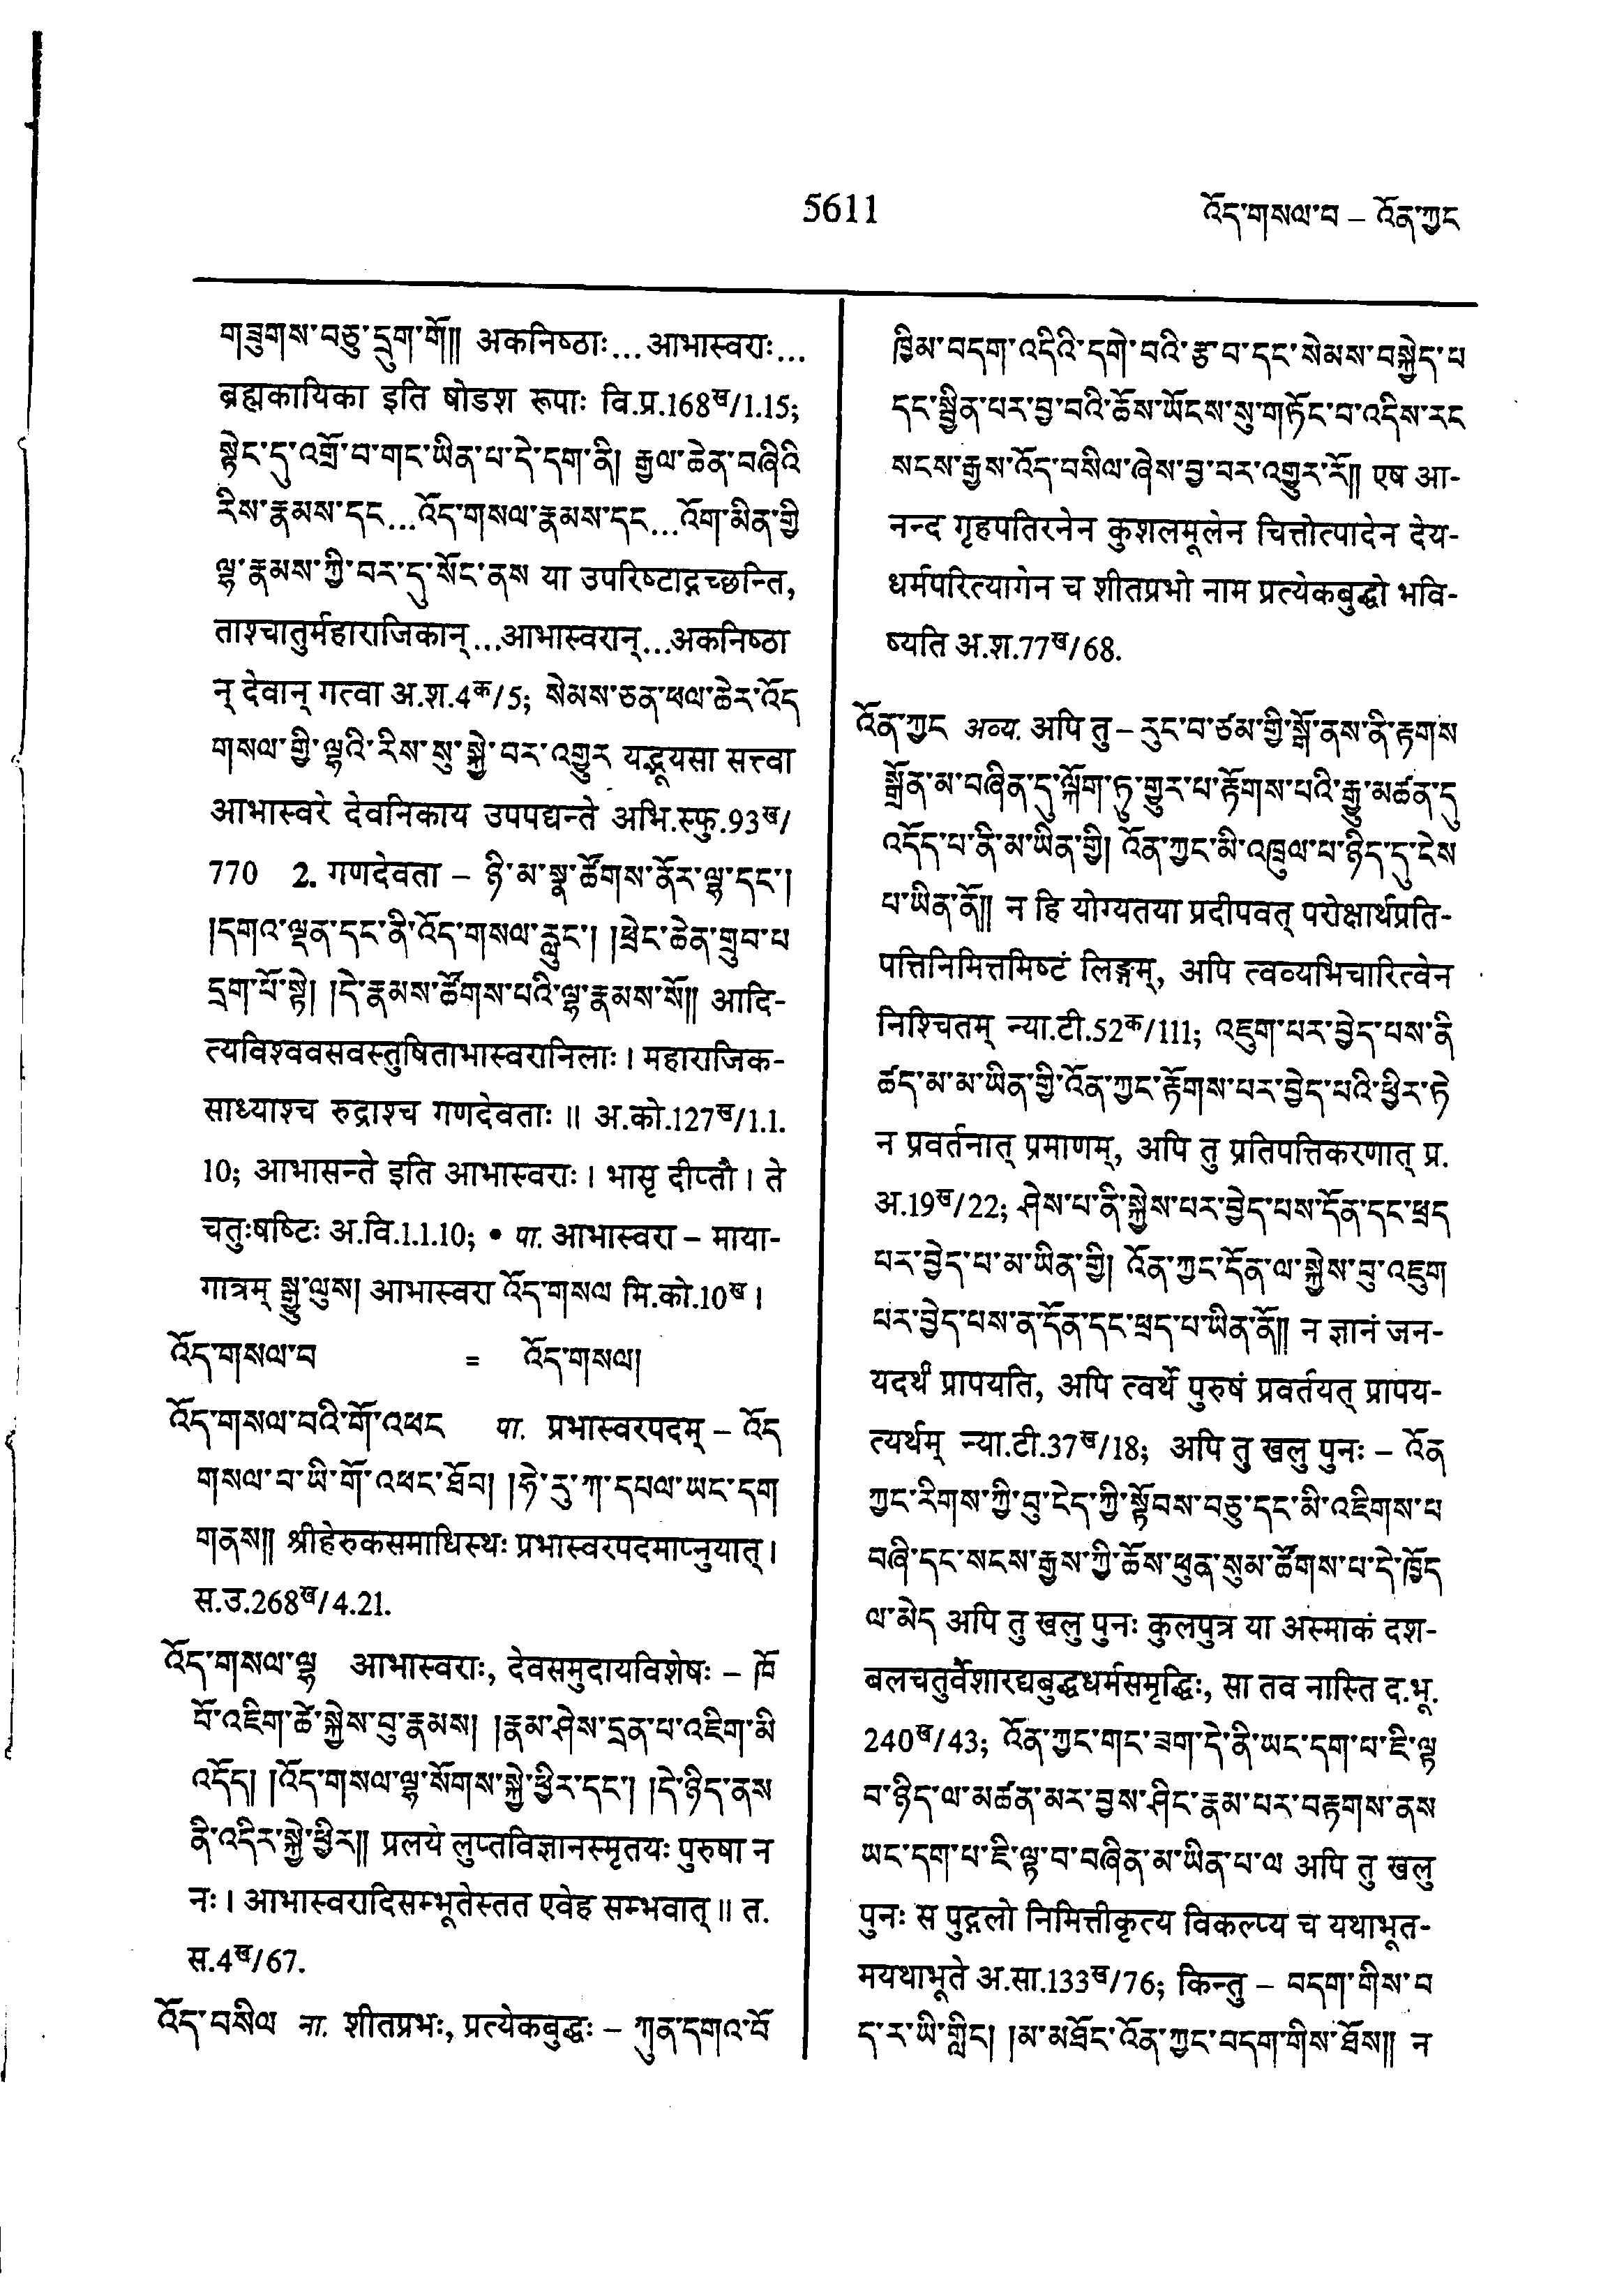 5611
འོད་གསལ་བ – འོན་ཀྱང
གཟུགས་བཅུ་དྲུག་གོ།། अकनिष्ठाः...आभास्वराः...
ब्रह्मकायिका इति षोडश रूपाः वि.प्र.168ख/1.15;
སྟེང་དུ་འགྲོ་བ་གང་ཡིན་པ་དེ་དག་ནི། རྒྱལ་ཆེན་བཞིའི
རིས་རྣམས་དང...འོད་གསལ་རྣམས་དང...འོག་མིན་གྱི
ལྷ་རྣམས་ཀྱི་བར་དུ་སོང་ནས या उपरिष्टाद्गच्छन्ति,
ताश्चातुर्महाराजिकान्...आभास्वरान्...अकनिष्ठा
न् देवान् गत्वा अ.श.4क/5; སེམས་ཅན་ཕལ་ཆེར་འོད
གསལ་གྱི་ལྷའི་རིས་སུ་སྐྱེ་བར་འགྱུར यद्भूयसा सत्त्वा
आभास्वरे देवनिकाय उपपद्यन्ते अभि.स्फु.93ख/
770 2. गणदेवता – ཉི་མ་སྣ་ཚོགས་ནོར་ལྷ་དང་།
།དགའ་ལྡན་དང་ནི་འོད་གསལ་རླུང་། །ཕྲེང་ཆེན་གྲུབ་པ
དྲག་པོ་སྟེ། །དེ་རྣམས་ཚོགས་པའི་ལྷ་རྣམས་སོ།། आदि-
त्यविश्ववसवस्तुषिताभास्वरानिलाः । महाराजिक-
साध्याश्च रुद्राश्च गणदेवताः ॥ अ.को.127ख/1.1.
10; आभासन्ते इति आभास्वराः । भासृ दीप्तौ । ते
चतुःषष्टिः अ.वि.1.1.10; • पा. आभास्वरा – माया-
गात्रम् སྒྱུ་ལུས། आभास्वरा འོད་གསལ मि.को.10ख ।
འོད་གསལ་བ = འོད་གསལ།
འོད་གསལ་བའི་གོ་འཕང पा. प्रभास्वरपदम् – འོད
གསལ་བ་ཡི་གོ་འཕང་ཐོབ། །ཧེ་རུ་ཀ་དཔལ་ཡང་དག
གནས།། श्रीहेरुकसमाधिस्थः प्रभास्वरपदमाप्नुयात् ।
स.उ.268ख/4.21.
འོད་གསལ་ལྷ आभास्वराः, देवसमुदायविशेषः – ཁོ
བོ་འཇིག་ཚེ་སྐྱེས་བུ་རྣམས། །རྣམ་ཤེས་དྲན་པ་འཇིག་མི
འདོད། །འོད་གསལ་ལྷ་སོགས་སྐྱེ་ཕྱིར་དང་། །དེ་ཉིད་ནས
ནི་འདིར་སྐྱེ་ཕྱིར།། प्रलये लुप्तविज्ञानस्मृतयः पुरुषा न
नः । आभास्वरादिसम्भूतेस्तत एवेह सम्भवात् ॥ त.
स.4ख/67.
འོད་བསིལ ना. शीतप्रभः, प्रत्येकबुद्धः – ཀུན་དགའ་བོ
ཁྱིམ་བདག་འདིའི་དགེ་བའི་རྩ་བ་དང་སེམས་བསྐྱེད་པ
དང་སྦྱིན་པར་བྱ་བའི་ཆོས་ཡོངས་སུ་གཏོང་བ་འདིས་རང
སངས་རྒྱས་འོད་བསིལ་ཞེས་བྱ་བར་འགྱུར་རོ།། एष आ-
नन्द गृहपतिरनेन कुशलमूलेन चित्तोत्पादेन देय-
धर्मपरित्यागेन च शीतप्रभो नाम प्रत्येकबुद्धो भवि-
ष्यति अ.श.77ख/68.
འོན་ཀྱང अव्य. अपि तु – རུང་བ་ཙམ་གྱི་སྒོ་ནས་ནི་རྟགས
སྒྲོན་མ་བཞིན་དུ་ལྐོག་ཏུ་གྱུར་པ་རྟོགས་པའི་རྒྱུ་མཚན་དུ
འདོད་པ་ནི་མ་ཡིན་གྱི། འོན་ཀྱང་མི་འཁྲུལ་པ་ཉིད་དུ་ངེས
པ་ཡིན་ནོ།། न हि योग्यतया प्रदीपवत् परोक्षार्थप्रति-
पत्तिनिमित्तमिष्टं लिङ्गम्, अपि त्वव्यभिचारित्वेन
निश्चितम् न्या.टी.52क/111; འཇུག་པར་བྱེད་པས་ནི
ཚད་མ་མ་ཡིན་གྱི་འོན་ཀྱང་རྟོགས་པར་བྱེད་པའི་ཕྱིར་ཏེ
न प्रवर्तनात् प्रमाणम्, अपि तु प्रतिपत्तिकरणात् प्र.
अ.19ख/22; ཤེས་པ་ནི་སྐྱེས་པར་བྱེད་པས་དོན་དང་ཕྲད
པར་བྱེད་པ་མ་ཡིན་གྱི། འོན་ཀྱང་དོན་ལ་སྐྱེས་བུ་འཇུག
པར་བྱེད་པས་ན་དོན་དང་ཕྲད་པ་ཡིན་ནོ།། न ज्ञानं जन-
यदर्थं प्रापयति, अपि त्वर्थे पुरुषं प्रवर्तयत् प्रापय-
त्यर्थम् न्या.टी.37ख/18; अपि तु खलु पुनः – འོན
ཀྱང་རིགས་ཀྱི་བུ་ངེད་ཀྱི་སྟོབས་བཅུ་དང་མི་འཇིགས་པ
བཞི་དང་སངས་རྒྱས་ཀྱི་ཆོས་ཕུན་སུམ་ཚོགས་པ་དེ་ཁྱོད
ལ་མེད अपि तु खलु पुनः कुलपुत्र या अस्माकं दश-
बलचतुर्वैशारद्यबुद्धधर्मसमृद्धिः, सा तव नास्ति द.भू.
240ख/43; འོན་ཀྱང་གང་ཟག་དེ་ནི་ཡང་དག་པ་ཇི་ལྟ
བ་ཉིད་ལ་མཚན་མར་བྱས་ཤིང་རྣམ་པར་བརྟགས་ནས
ཡང་དག་པ་ཇི་ལྟ་བ་བཞིན་མ་ཡིན་པ་ལ अपि तु खलु
पुनः स पुद्गलो निमित्तीकृत्य विकल्प्य च यथाभूत-
मयथाभूते अ.सा.133ख/76; किन्तु – བདག་གིས་བ
ད་ར་ཡི་གླིང། །མ་མཐོང་འོན་ཀྱང་བདག་གིས་ཐོས།། न